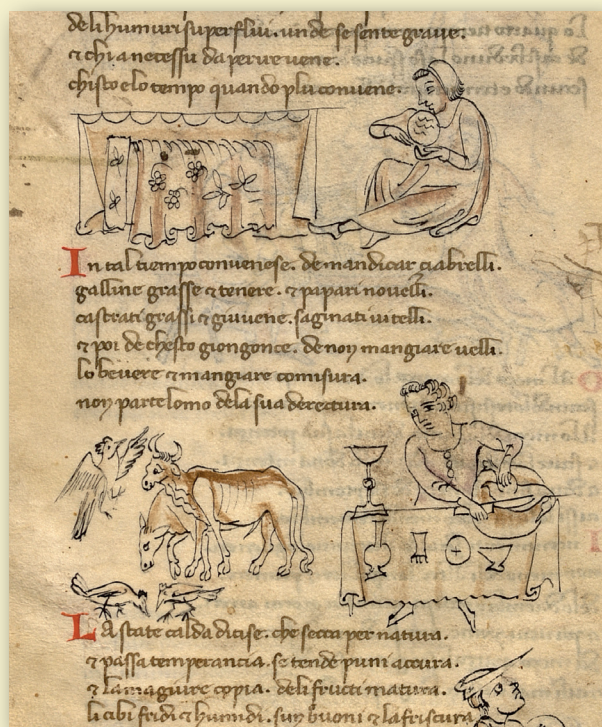 deli humuri superflui. unde se sente grave.
⁊ chi a necessu da per ve vene.
chisto e lo tempo quando plu conviene.
In tal tiempo convenese. de mandicar ciabrelli.
galline grasse ⁊ tenere. ⁊ papari novelli.
castrati grassi ⁊ giuvene. saginati vitelli.
⁊ poi de chesto giongonce. de non mangiare velli.
lo bevere ⁊ mangiare comisura.
non parte lomo dela sua derectura.
La state calda dicise. che secca per natura.
⁊ passa temperancia. se tende puni accura.
⁊ la magiure copia. deli fructi matura.
li cibi fridi ⁊ humidi. sun buoni ⁊ la friscura